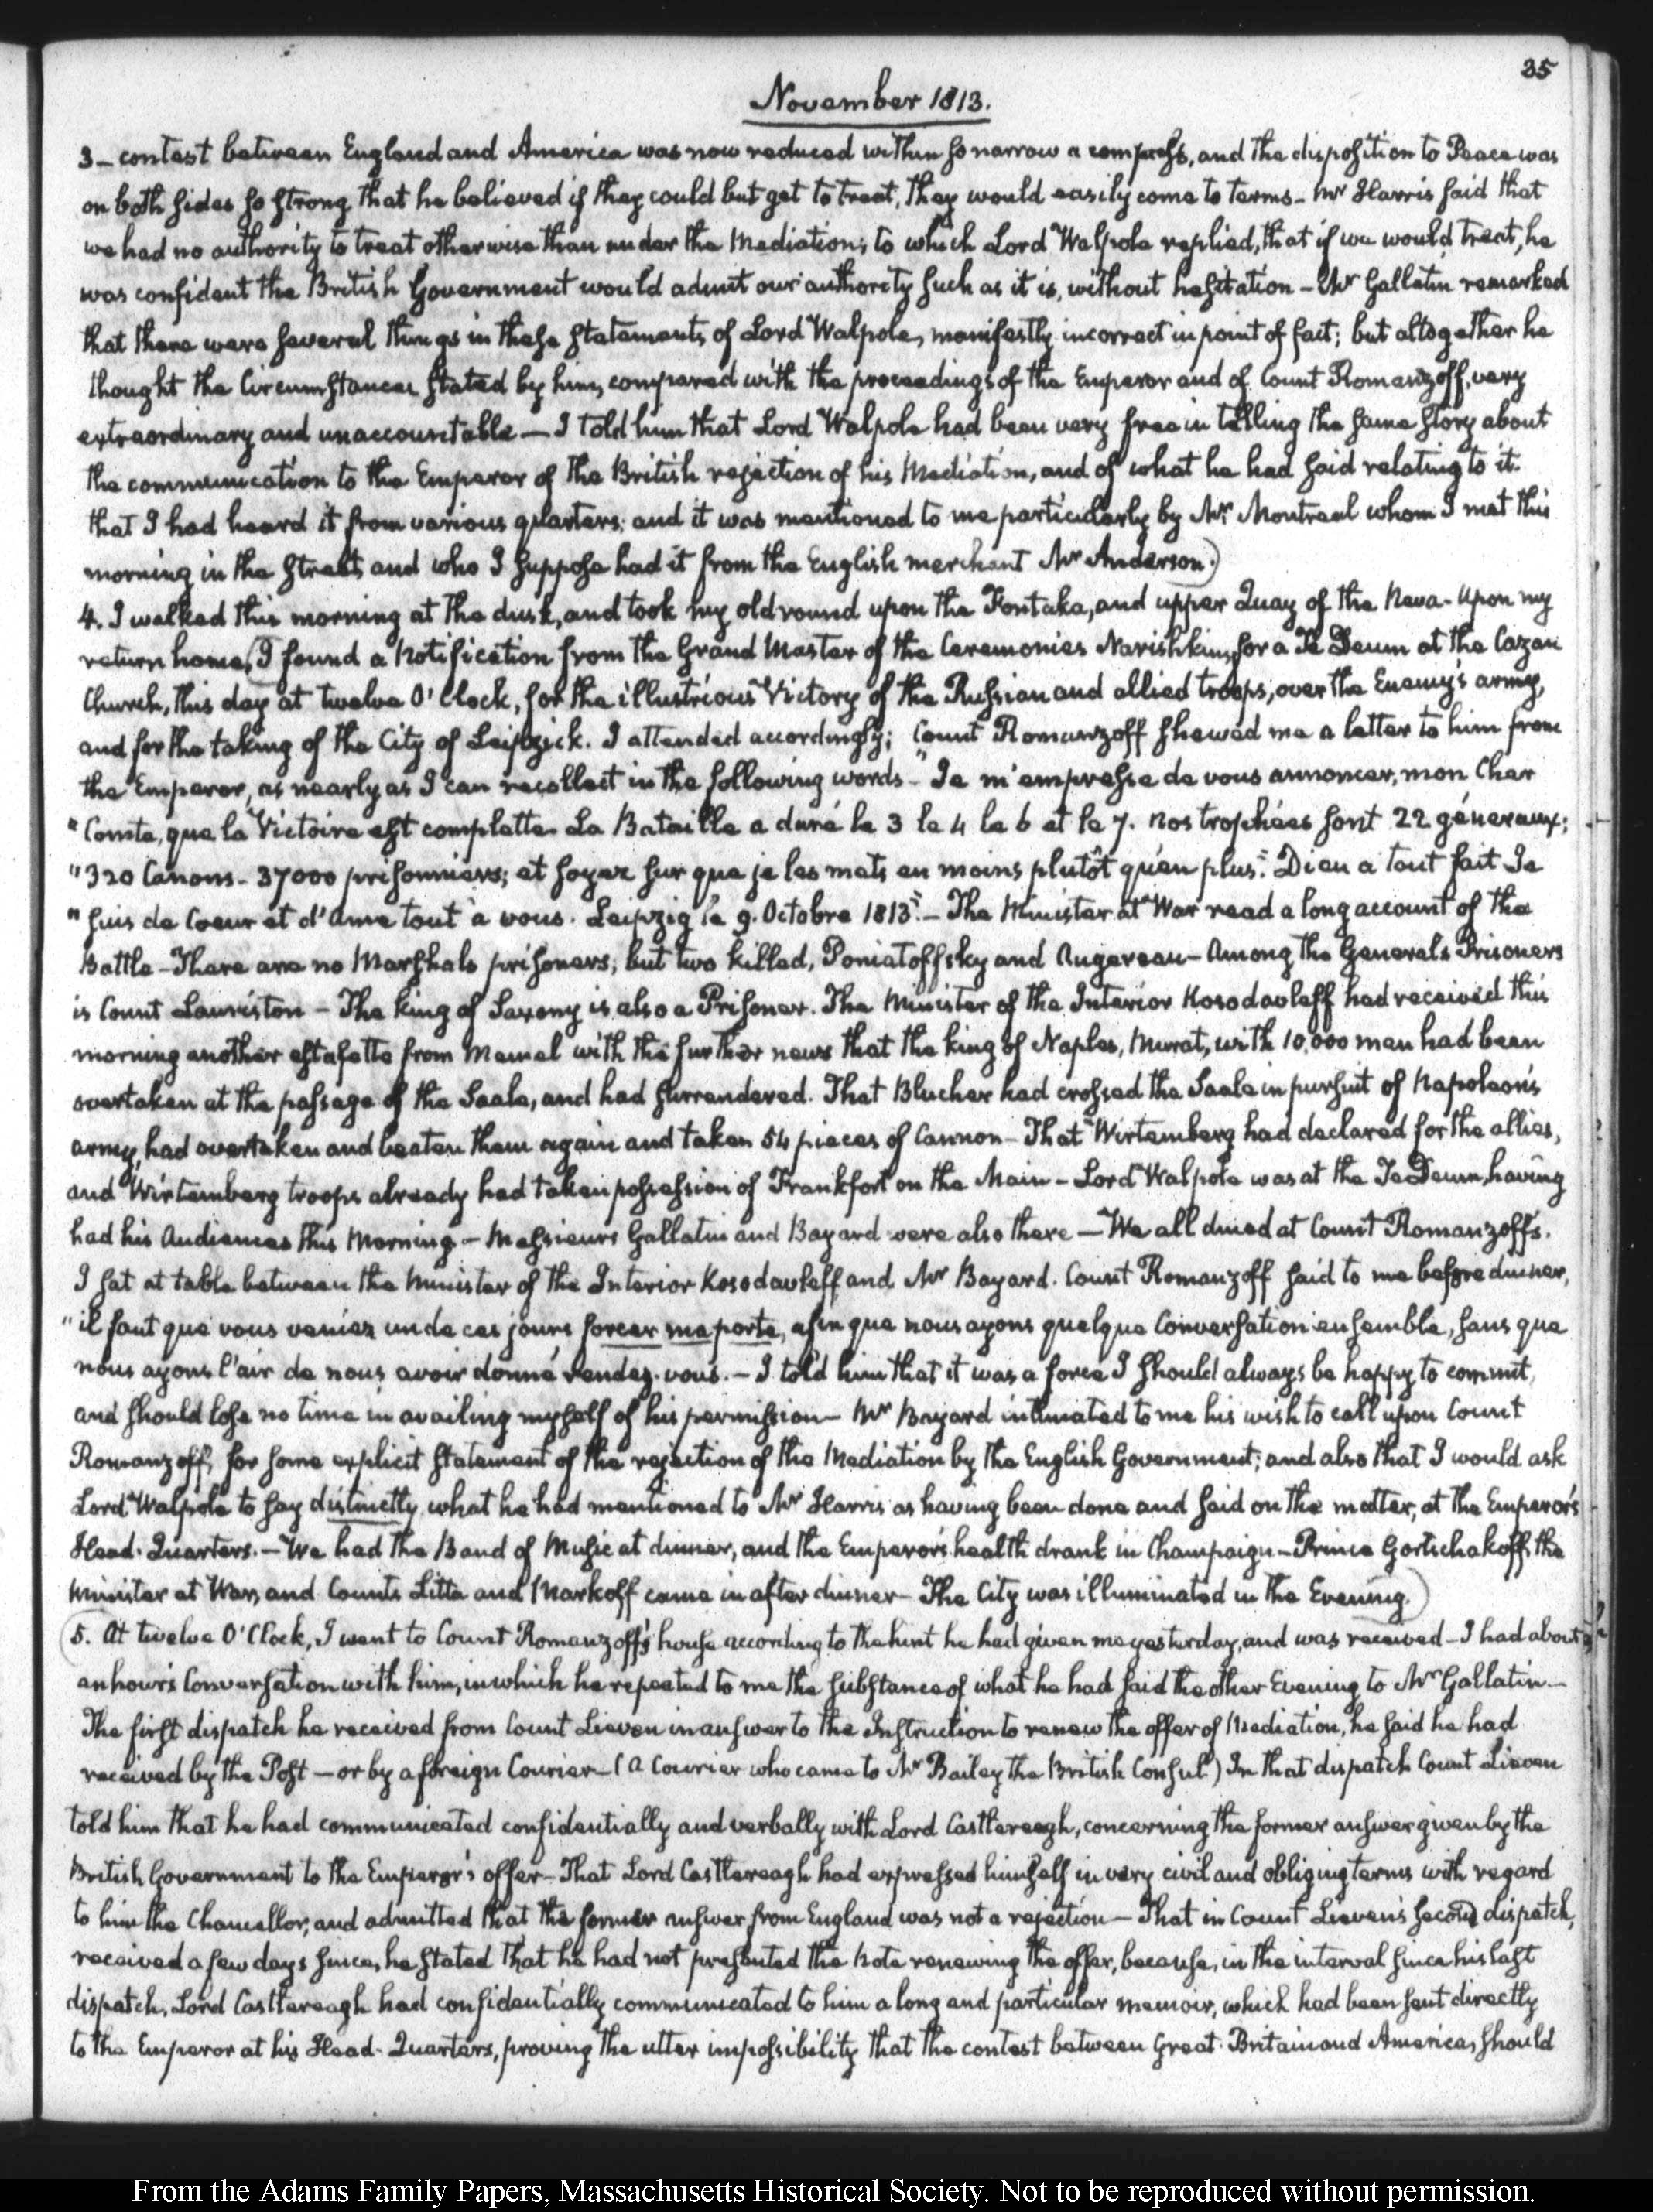 35
November 1813.
3 - contest between England and America was now reduced within so narrow a compass, and the disposition to Peace was
on both sides so strong that he believed if they could but get to treat, they would easily come to terms - Mr Harris said that
we had no authority to treat otherwise than under the Mediation; to which Lord Walpole replied, that if we would treat, he
was confident the British Government would admit our authority such as it is, without hesitation - Mr Gallatin remarked
that there were several things in these statements of Lord Walpole, manifestly incorrect in point of fact; but altogether he
thought the Circumstances stated by him, compared with the proceedings of the Emperor and of Count Romanzoff, very
extraordinary and unaccountable — I told him that Lord Walpole had been very free in telling the same story about
the communication to the Emperor of the British rejection of his Mediation, and of what he had said relating to it.
that I had heard it from various quarters; and it was mentioned to me particularly by Mr Montreal whom I met this
morning in the street and who I suppose had it from the English merchant Mr Anderson.)
4. I walked this morning at the dusk, and took my old round upon the Fontaka, and upper Quay of the Neva - Upon my
return home, (I found a Notification from the Grand Master of the Ceremonies Narishkin, for a Te Deum at the Cazan
Church, this day at twelve O'Clock, for the illustrious Victory of the Russian and allied troops, over the Enemy's army,
and for the taking of the City of Leipzick. I attended accordingly; Count Romanzoff shewed me a letter to him from
the Emperor, as nearly as I can recollect in the following words - "Je m'empresse de vous annoncer, mon Cher
"Comte, que la Victoire est complette. La Bataille a duré le 3 le 4 le 6 et le 7. nos trophées sont 22 géneraux;
"320 Canons - 37000 prisonniers; et soyez sur que je les mets en moins plutôt qu'en plus. Dieu a tout fait Je
"suis de Coeur et d'Ame tout à vous. Leipzig le 9. Octobre 1813". - The Minister at War read a long account of the
Battle - There are no Marshals prisoners; but two killed, Poniatoffsky and Augereau - Among the Generals Prisoners
is Count Lauriston - The king of Saxony is also a Prisoner. The Minister of the Interior Kosodavleff had received this
morning another estafette from Memel with the further news that the king of Naples, Murat, with 10,000 men had been
overtaken at the passage of the Saale, and had surrendered. That Blucher had crossed the Saale in pursuit of Napoleon's
army, had overtaken and beaten them again and taken 54 pieces of Cannon - That Wirtemberg had declared for the allies,
and Wirtemberg troops already had taken possession of Frankfort on the Main - Lord Walpole was at the Te Deum, having
had his Audiences this Morning. - Messieurs Gallatin and Bayard were also there — We all dined at Count Romanzoff's.
I sat at table between the Minister of the Interior Kosodavleff and Mr Bayard. Count Romanzoff said to me before dinner,
"il faut que vous veniez un de ces jours forcer ma porte, afin que nous ayons quelque Conversation ensemble, sans que
nous ayons l'air de nous avoir donné rendez-vous. - I told him that it was a force I should always be happy to commit,
and should lose no time in availing myself of his permission - Mr Bayard intimated to me his wish to call upon Count
Romanzoff, for some explicit statement of the rejection of the Mediation by the English Government; and also that I would ask
Lord Walpole to say distinctly what he had mentioned to Mr Harris as having been done and said on the matter, at the Emperor's
Head-Quarters. - We had the Band of Music at dinner, and the Emperor's health drank in Champaign - Prince Gortschakoff, the
Minister at War, and Counts Litta and Markoff came in after dinner - The City was illuminated in the Evening.)
(5. At twelve O'Clock, I went to Count Romanzoff's house according to the hint he had given me yesterday, and was received - I had about
an hour's Conversation with him, in which he repeated to me the substance of what he had said the other Evening to Mr Gallatin -
The first dispatch he received from Count Lieven in answer to the Instruction to renew the offer of Mediation, he said he had
received by the Post - or by a foreign Courier - (A Courier who came to Mr Bailey the British Consul) In that dispatch Count Lieven
told him that he had communicated confidentially and verbally with Lord Castlereagh, concerning the former answer given by the
British Government to the Emperor's offer - That Lord Castlereagh had expressed himself in very civil and obliging terms with regard
to him the Chancellor, and admitted that the former answer from England was not a rejection - That in Count Lieven's second dispatch,
received a few days since, he stated that he had not presented the Note renewing the offer, because, in the interval since his last
dispatch, Lord Castlereagh had confidentially communicated to him a long and particular memoir, which had been sent directly
to the Emperor at his Head-Quarters, proving the utter impossibility that the contest between Great-Britain and America, should
From the Adams Family Papers, Massachusetts Historical Society. Not to be reproduced without permission.